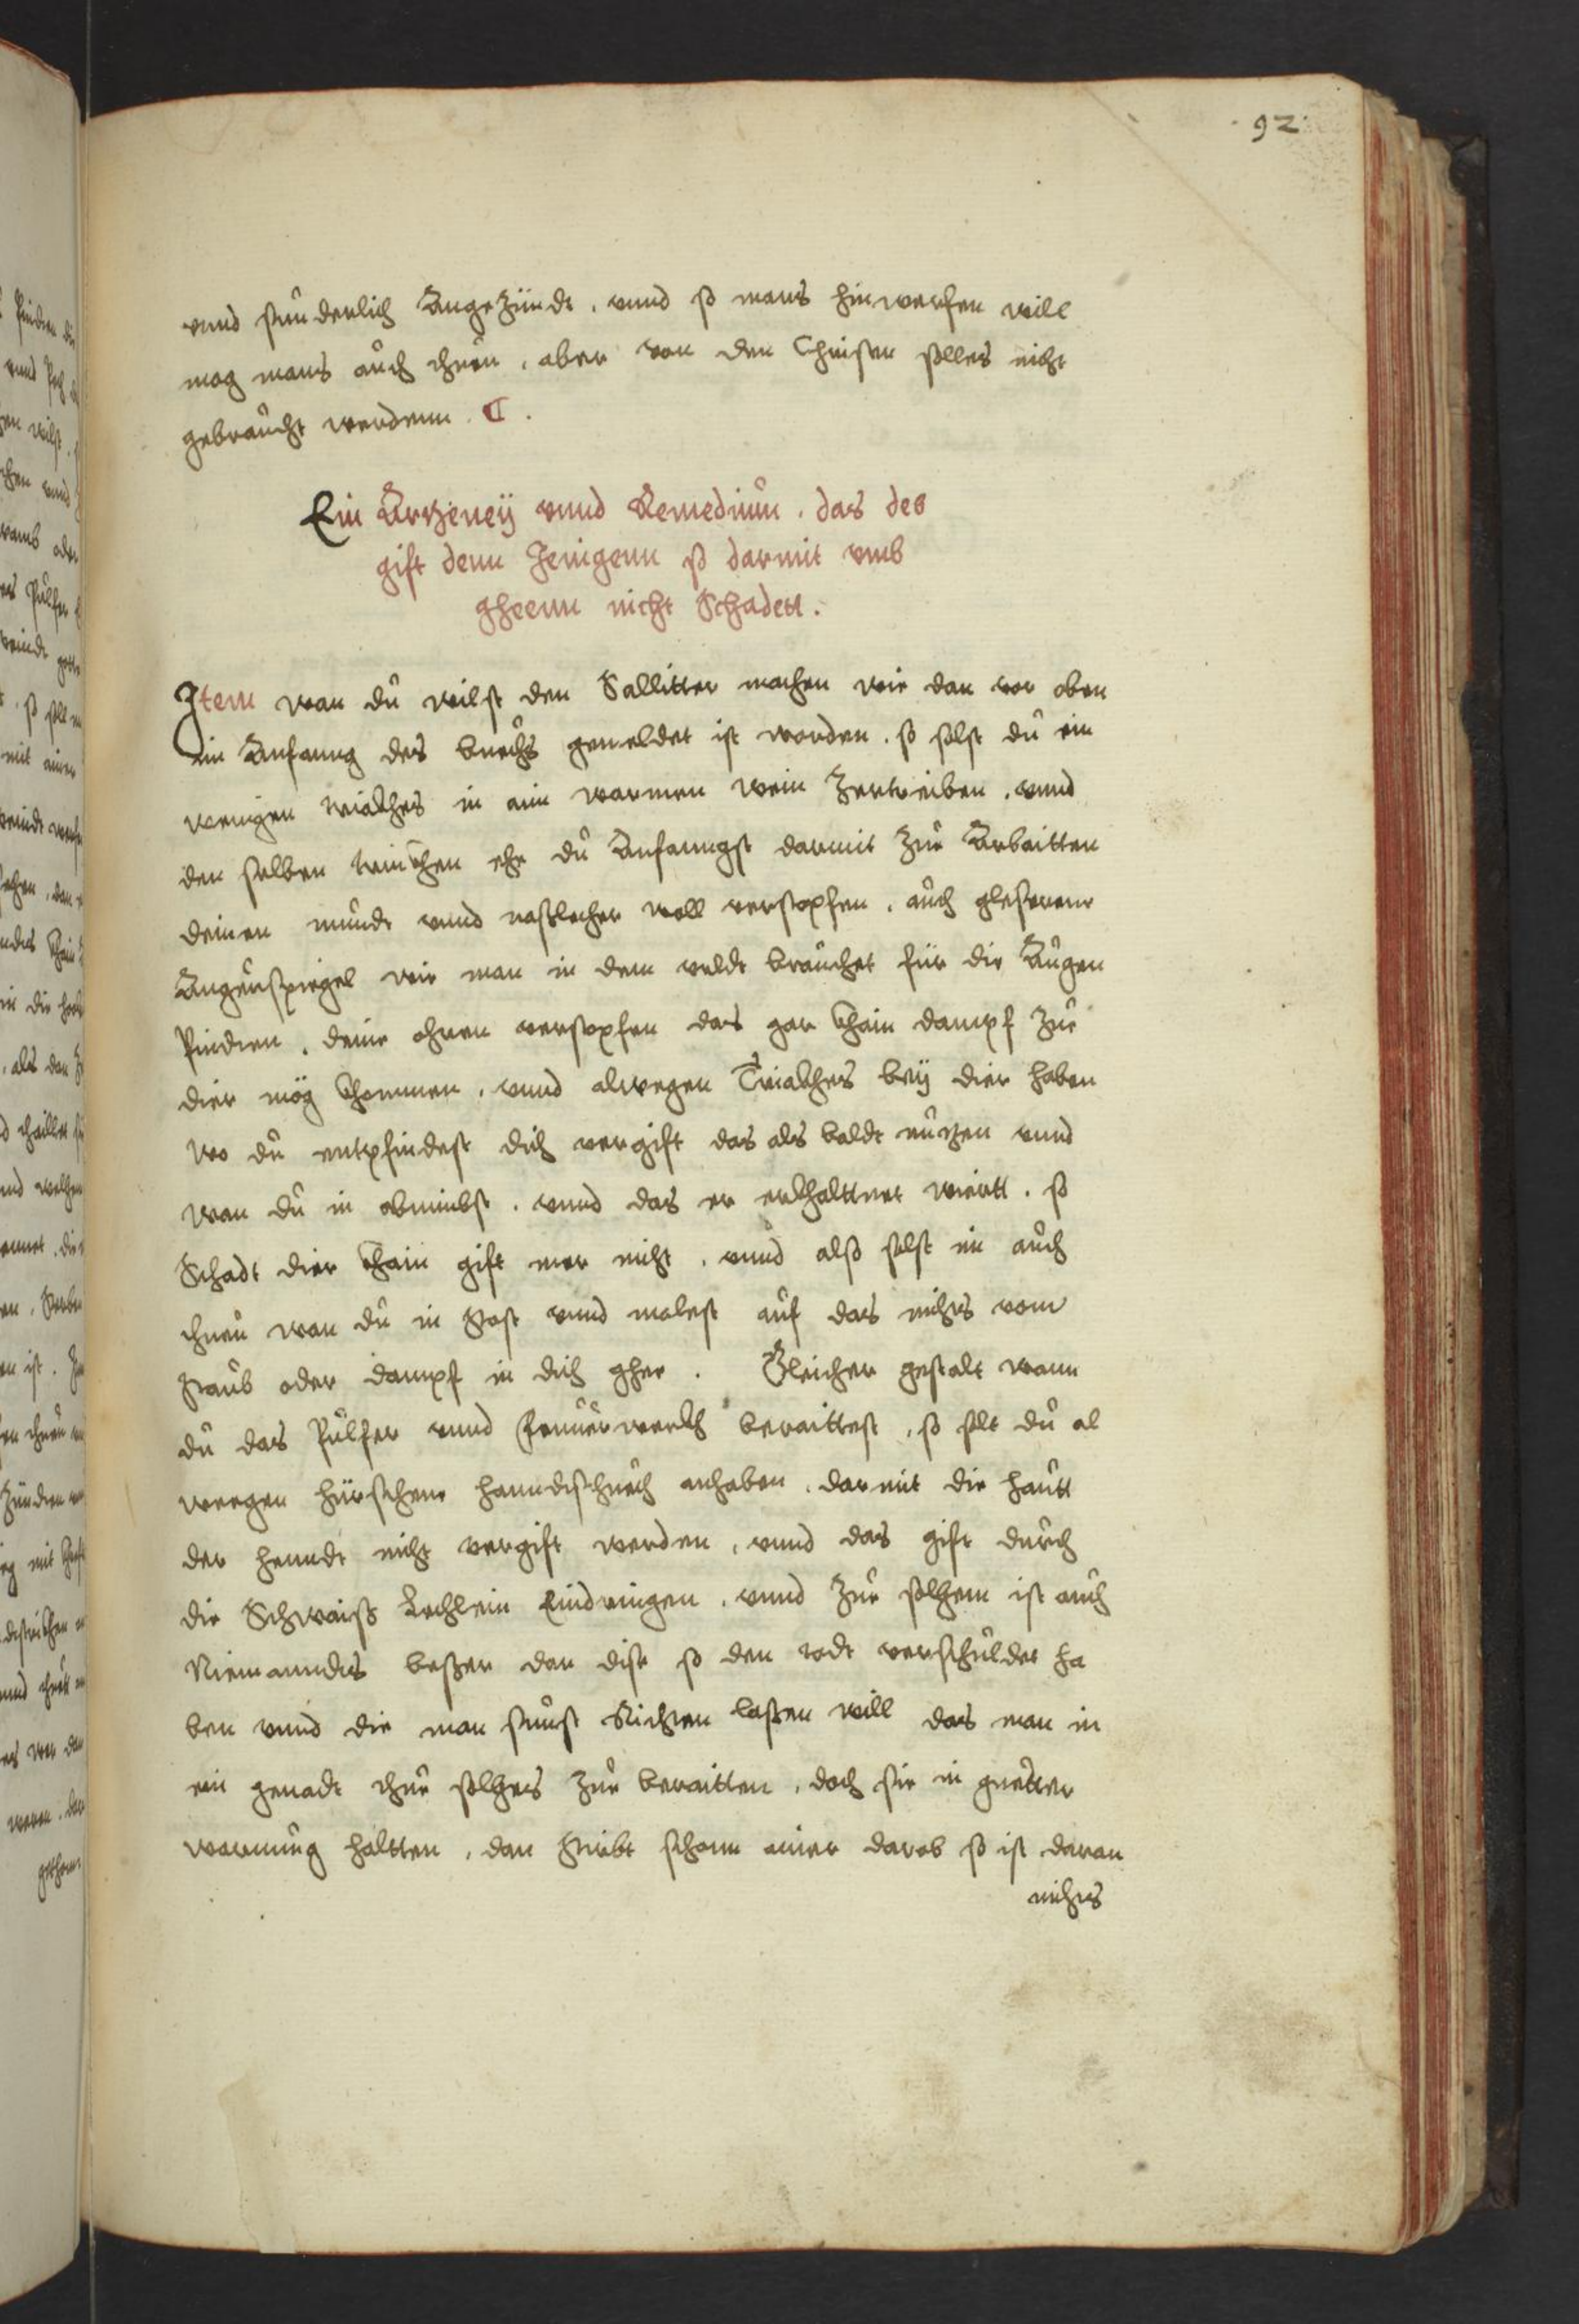 92
vnnd sunderlich Angezündt, vnnd so mans hinwerfen will
mag mans auch thuen, aber von den Christen solles nicht
gebraucht werdenn.
Ein Artzeneÿ vnnd Remedium, das des
gift denn Jenigenn so darmit vmb
gheenn nicht Schadett.
Item wan du wilst den Sallitter machen wie dan vor oben
im Anfanng des buechs gemeldet ist worden, so solst du ein
wenigen triackhes in ain warmen wein zertreiben, vnnd
den selben trinckhen ehe du Anfanngst darmit zue Arbaitten
deinen mundt vnnd naslecher woll verstopfen, auch gleserene
Augenspiegel wie man in dem veldt brauchet für die Augen
Pindten, deine ohren verstopfen das gar khain dampf zue
dier mög khommen, vnnd alwegen Triackhes beÿ dier haben
wo du entpfindest dich vergift das als baldt nutzen vnnd
wan du in abnimbst, vnnd das er erkhalttnet wiertt, so
Schadt dier khain gift mer nicht, vnnd also solst im auch
thuen wan du in stost vnnd malest auf das nichts vom
staub oder dampf in dich ghee. Gleicher gestalt wann
du das Pulfer vnnd feuuerwerckh beraittest, so solt du al
weegen hürschene hanndtschuech anhaben, darmit die hautt
der henndt nicht vergift werden, vnnd das gift durch
die Schwaiss Lechlein Eindringen, vnnd zue solchem ist auch
Niemanndts besser dan dise so den todt verschuldet ha
ben vnnd die man sunst Richten lassen will das man in
ein genadt thue solches zue beraitten, doch sie in guetter
warnung haltten, dan stirbt schonn ainer darob so ist daran
nichts